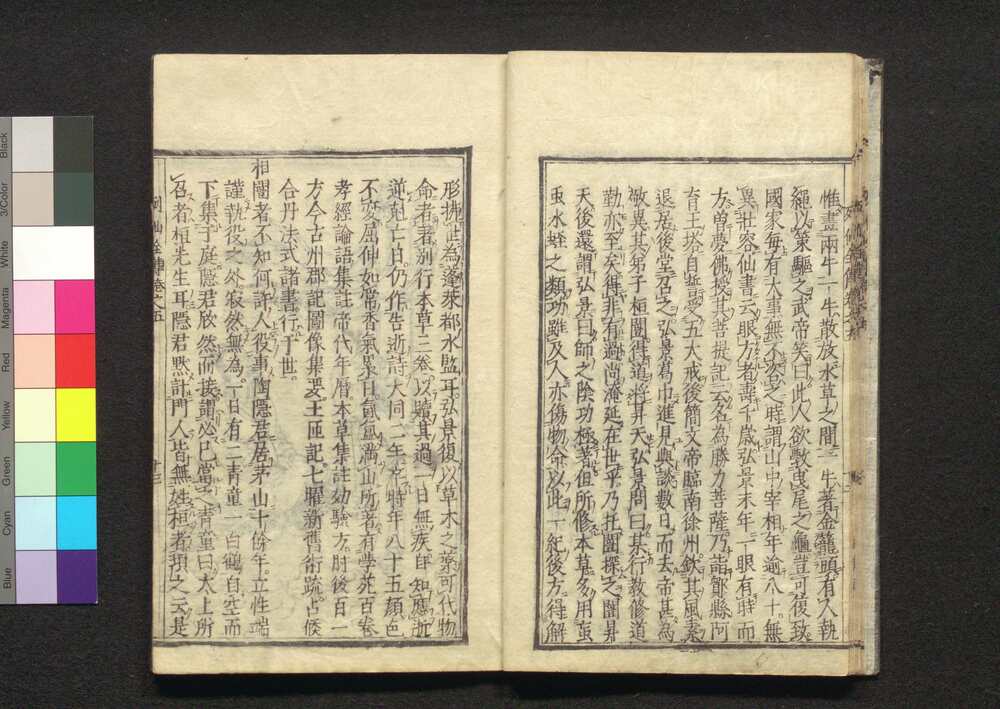 惟畫兩牛一牛散放水草之間一牛著金籠頭有人執
繩以策驅之武帝笑曰此人欲斆曳尾之龜豈可復致
國家毎有大事無不咨之時謂山中宰相年逾八十無
異壯容仙書云眼方者壽千歲弘景末年一眼有時而
方曽夢佛授其菩提記云名為勝力菩薩乃詣鄮縣阿
育王塔自誓受五大戒後簡文帝臨南徐州欽其風素
退居後堂召之弘景葛巾進見與談數日而去帝甚
敬異其弟子桓闓得道將昇天弘景問曰某行教修道
勤亦至矣得非有過尚淹延在世乎乃托闓探之闓昇
天後還謂弘景曰師之陰功極著但所修本草多用䖟
虫水蛭之類功雖及人亦傷物命以此一紀後方得解
形拂世為蓬萊都水監耳弘景復以草木之藥可代物
命者著別行本草三卷以贖其過一日無疾自知應逝
逆尅亡日仍作告逝詩大同二年卒時年八十五顏色
不変屈伸如常香氣累日氤氳滿山所著有學苑百卷
孝經論語集註帝代年曆本草集註効驗方肘後百一
方今古州郡記圖像集要玉匱記七曜新舊術疏占候
合丹法式諸書行于世
桓闓者不知何許人役事陶隱君居茅山十餘年立性端
謹執役之外寂然無為一日有二青童一白鶴自空而
下集于庭隱君欣然而接謂必已當之青童曰太上所
召者桓先生耳隱君黙計門人皆無姓桓者須之云是
列仙全傳卷之五
十三
Black
3/Color
White
Magenta
Red
Yellow
Green
Cyan
Blue